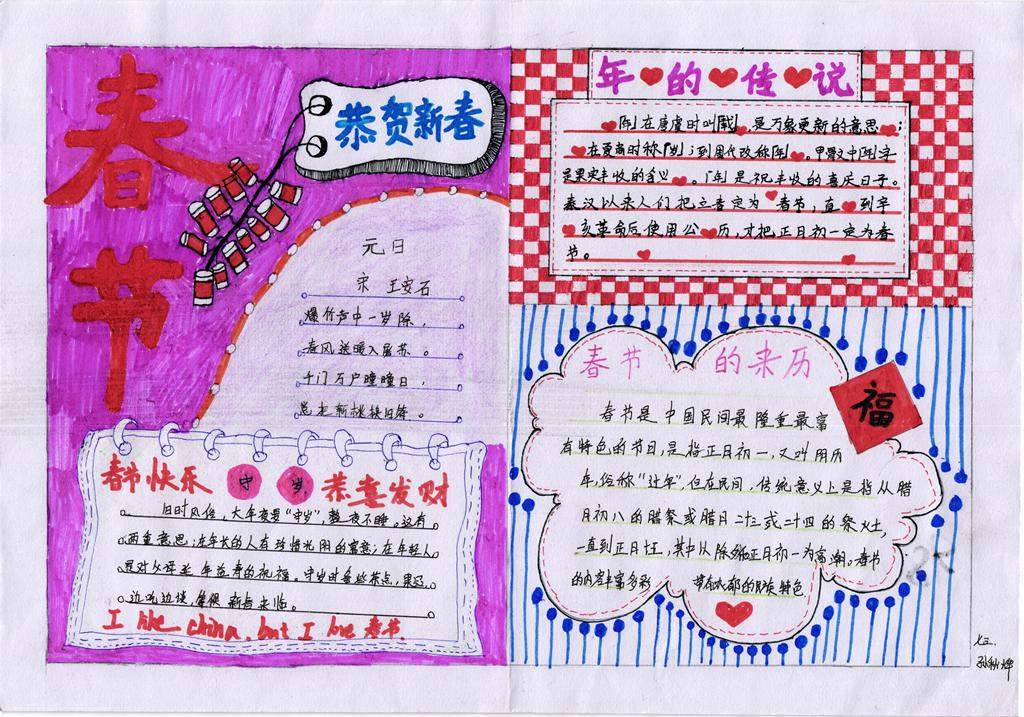 春节
恭贺新春
元日
宋 王安石
爆竹声中一岁除，
春风送暖入屠苏。
千门万户曈曈日，
总把新桃换旧符。
春节快乐 守岁 恭喜发财
旧时风俗，大年夜要“守岁”，整夜不睡。这有
两重意思：年长的人有珍惜光阴的寓意；在年轻人，
是对父母 延年益寿的祝福。守岁时备些茶点，果
边吃边谈，
I like china, but I love 春节.
年的传说
年在唐虞时叫载，是万象更新的意思；
在夏商时称岁；到周代改称年。甲骨文中年字
是果实丰收的含义。年是祝丰收的喜庆日子。
秦汉以来人们把立春定为春节，直到辛
亥革命后使用公历，才把正月初一定为春
节。
春节的来历
春节是中国民间最隆重最富
有特色的节日，是指正月初一，又叫阴历
年，俗称“过年”，但在民间，传统意义上是指从腊
月初八的腊祭或腊月二十三或二十四的祭灶，
一直到正月 其中从除 正月初一为高潮。春节
的内容丰富多彩 带有 的民族特色
福
七三.
孙